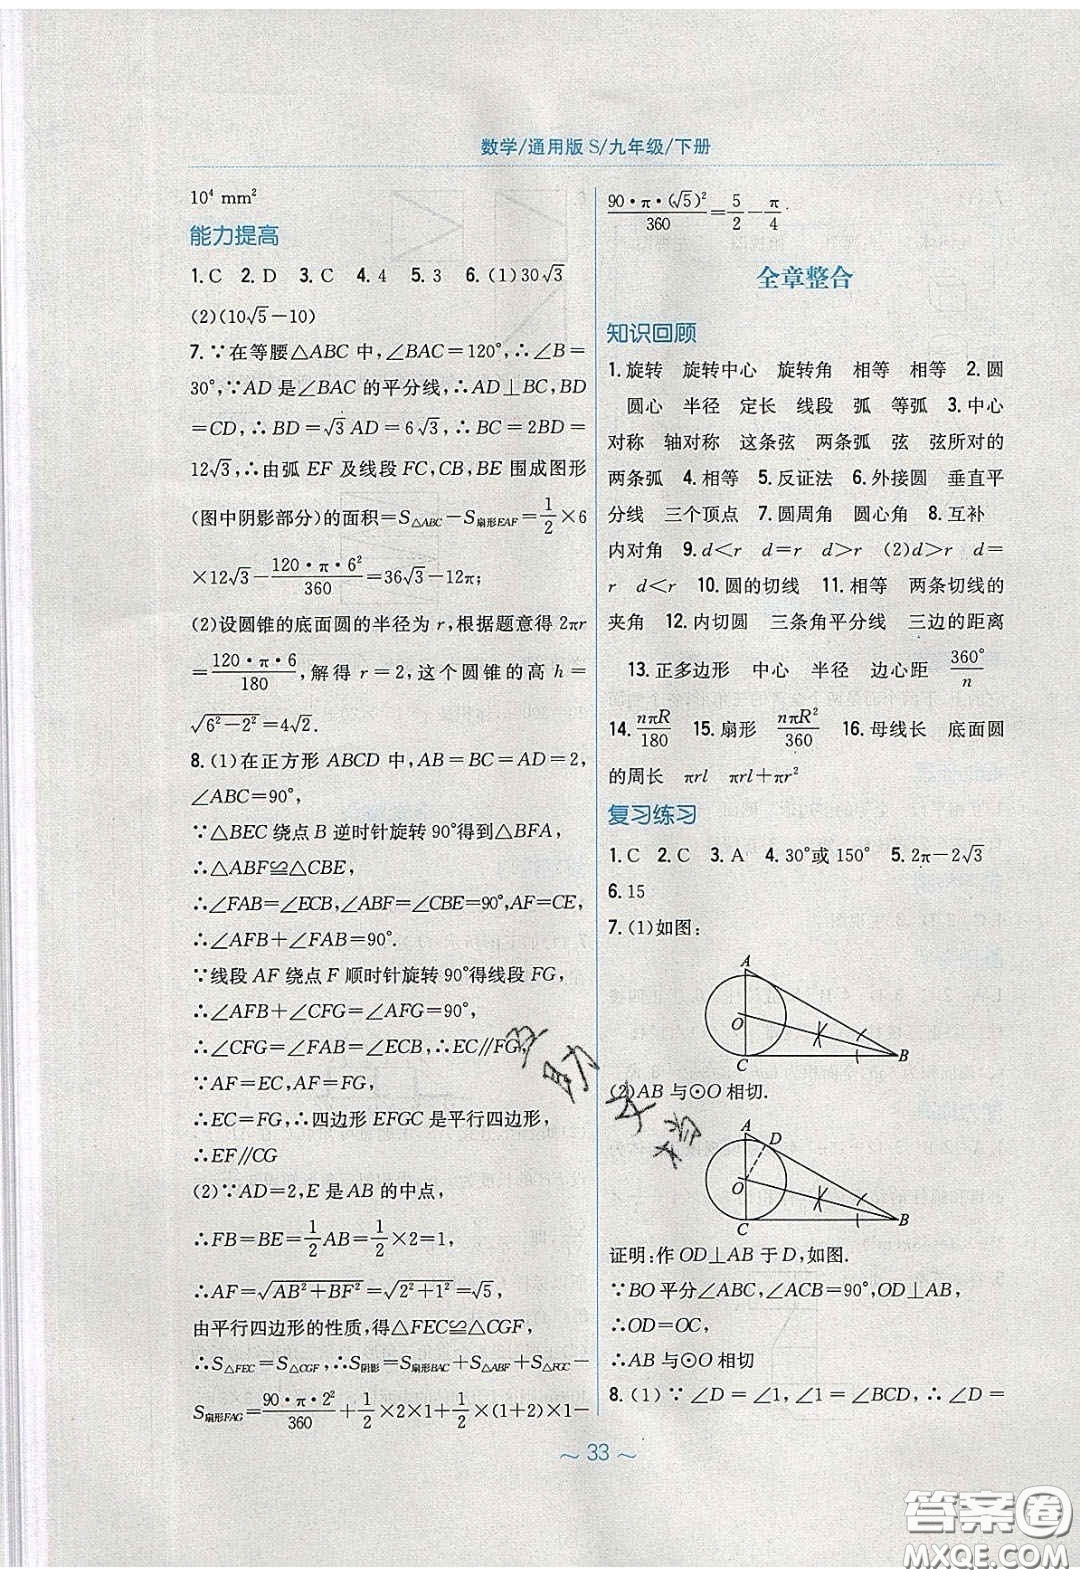 数学/通用版 S/九年级/下册
10⁴ mm²
能力提高
1. C  2. D  3. C  4. 4  5. 3  6. (1)30√3
(2)(10√5－10)
7. ∵在等腰△ABC 中,∠BAC＝120°,∴∠B＝
30°,∵AD 是∠BAC 的平分线,∴AD⊥BC,BD
＝CD,∴BD＝√3 AD＝6√3,∴BC＝2BD＝
12√3,∴由弧 EF 及线段 FC,CB,BE 围成图形
(图中阴影部分)的面积＝S△ABC－S扇形EAF＝1/2×6
×12√3－120·π·6²/360＝36√3－12π;
(2)设圆锥的底面圆的半径为 r,根据题意得 2πr
＝120·π·6/180,解得 r＝2,这个圆锥的高 h＝
√(6²－2²)＝4√2.
8. (1)在正方形 ABCD 中,AB＝BC＝AD＝2,
∠ABC＝90°,
∵△BEC 绕点 B 逆时针旋转 90°得到△BFA,
∴△ABF≌△CBE,
∴∠FAB＝∠ECB,∠ABF＝∠CBE＝90°,AF＝CE,
∴∠AFB＋∠FAB＝90°.
∵线段 AF 绕点 F 顺时针旋转 90°得线段 FG,
∴∠AFB＋∠CFG＝∠AFG＝90°,
∴∠CFG＝∠FAB＝∠ECB,∴EC∥FG,
∵AF＝EC,AF＝FG,
∴EC＝FG,∴四边形 EFGC 是平行四边形,
∴EF∥CG
(2)∵AD＝2,E 是 AB 的中点,
∴FB＝BE＝1/2AB＝1/2×2＝1,
∴AF＝√(AB²＋BF²)＝√(2²＋1²)＝√5,
由平行四边形的性质,得△FEC≌△CGF,
∴S△FEC＝S△CGF,∴S阴影＝S扇形BAC＋S△ABF＋S△FGC－
S扇形FAG＝90·π·2²/360＋1/2×2×1＋1/2×(1＋2)×1－
90·π·(√5)²/360＝5/2－π/4
全章整合
知识回顾
1. 旋转  旋转中心  旋转角  相等  相等  2. 圆
圆心  半径  定长  线段  弧  等弧  3. 中心
对称  轴对称  这条弦  两条弧  弦  弦所对的
两条弧  4. 相等  5. 反证法  6. 外接圆  垂直平
分线  三个顶点  7. 圆周角  圆心角  8. 互补
内对角  9. d＜r  d＝r  d＞r  (2)d＞r  d＝
r  d＜r  10. 圆的切线  11. 相等  两条切线的
夹角  12. 内切圆  三条角平分线  三边的距离
13. 正多边形  中心  半径  边心距  360°/n
14. nπR/180  15. 扇形  nπR²/360  16. 母线长  底面圆
的周长  πrl  πrl＋πr²
复习练习
1. C  2. C  3. A  4. 30°或 150°  5. 2π－2√3
6. 15
7. (1)如图:
A
O
C
B
(2)AB 与⊙O 相切.
A
D
O
C
B
证明:作 OD⊥AB 于 D,如图.
∵BO 平分∠ABC,∠ACB＝90°,OD⊥AB,
∴OD＝OC,
∴AB 与⊙O 相切
8. (1)∵∠D＝∠1,∠1＝∠BCD,∴∠D＝
～ 33 ～
答案圈
MXQE.COM